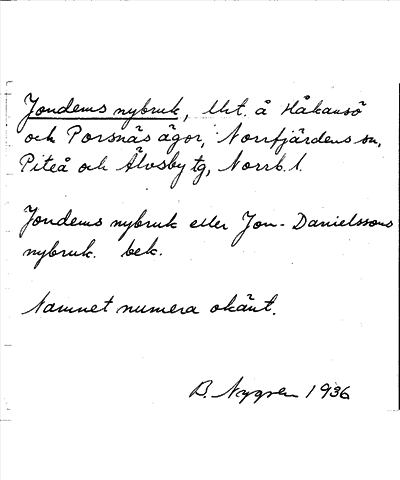 Jondems nybruk, Utr. å Håkansö
och Porsnäs ägor, Norrfjärdens sn,
Piteå och Älvsby tg, Norrb. l.
Jondems nybruk eller Jon-Danielssons
nybruk. bek.
Namnet numera okänt.
B. Nygren 1936